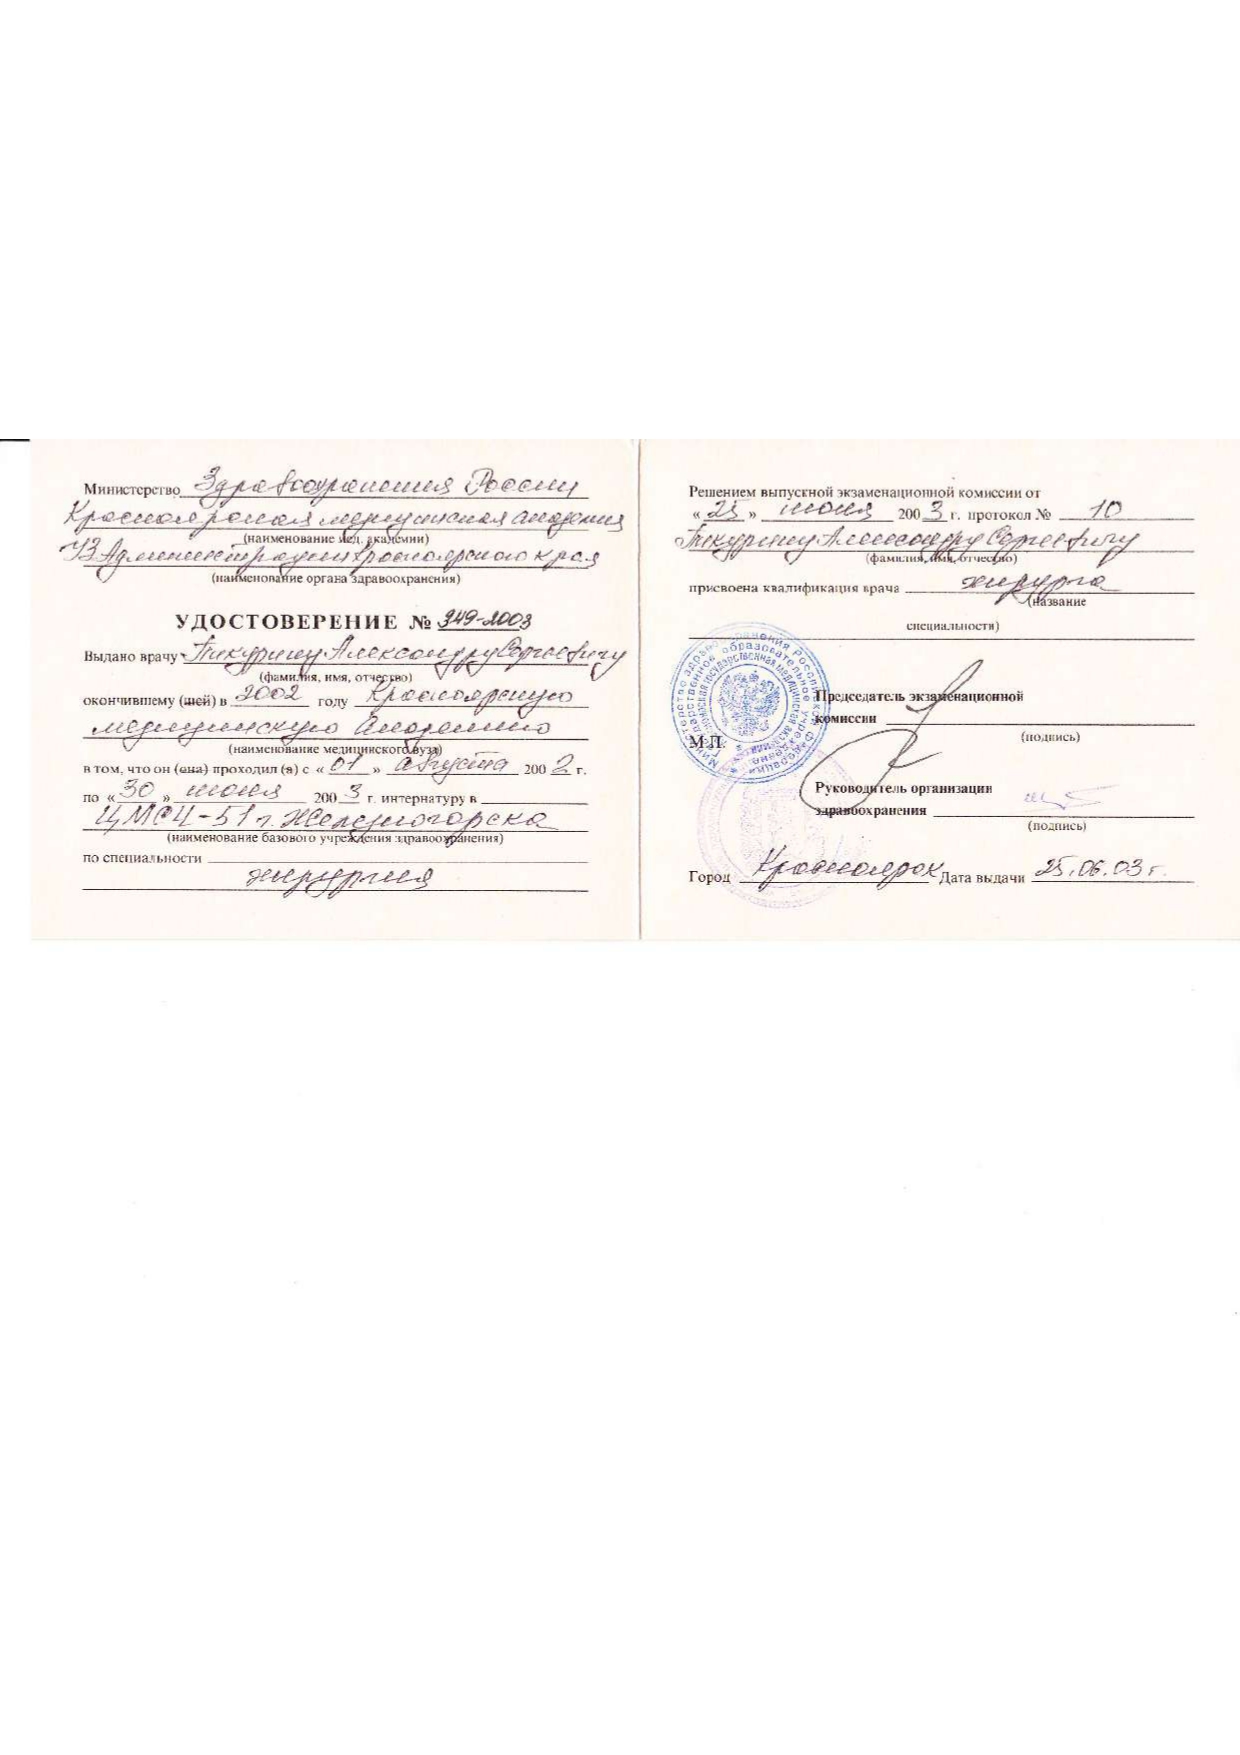 Министерство Здравоохранения России
Красноярская медицинская академия
(наименование мед. академии)
УЗ Администрации Красноярского края
(наименование органа здравоохранения)
УДОСТОВЕРЕНИЕ № 349-2003
Выдано врачу Пикурину Александру Сергеевичу
(фамилия, имя, отчество)
окончившему (шей) в 2002 году Красноярскую
медицинскую Академию
(наименование медицинского вуза)
в том, что он (она) проходил (а) с « 01 » августа 200 2 г.
по « 30 » июня 200 3 г. интернатуру в
ЦМСЧ-51 г. Железногорска
(наименование базового учреждения здравоохранения)
по специальности
хирургия
Решением выпускной экзаменационной комиссии от
« 25 » июня 200 3 г. протокол № 10
Пикурину Александру Сергеевичу
(фамилия, имя, отчество)
присвоена квалификация врача хирурга
(название
специальности)
Председатель экзаменационной
комиссии
(подпись)
М.П.
Руководитель организации
здравоохранения
(подпись)
Город Красноярск Дата выдачи 25.06.03 г.